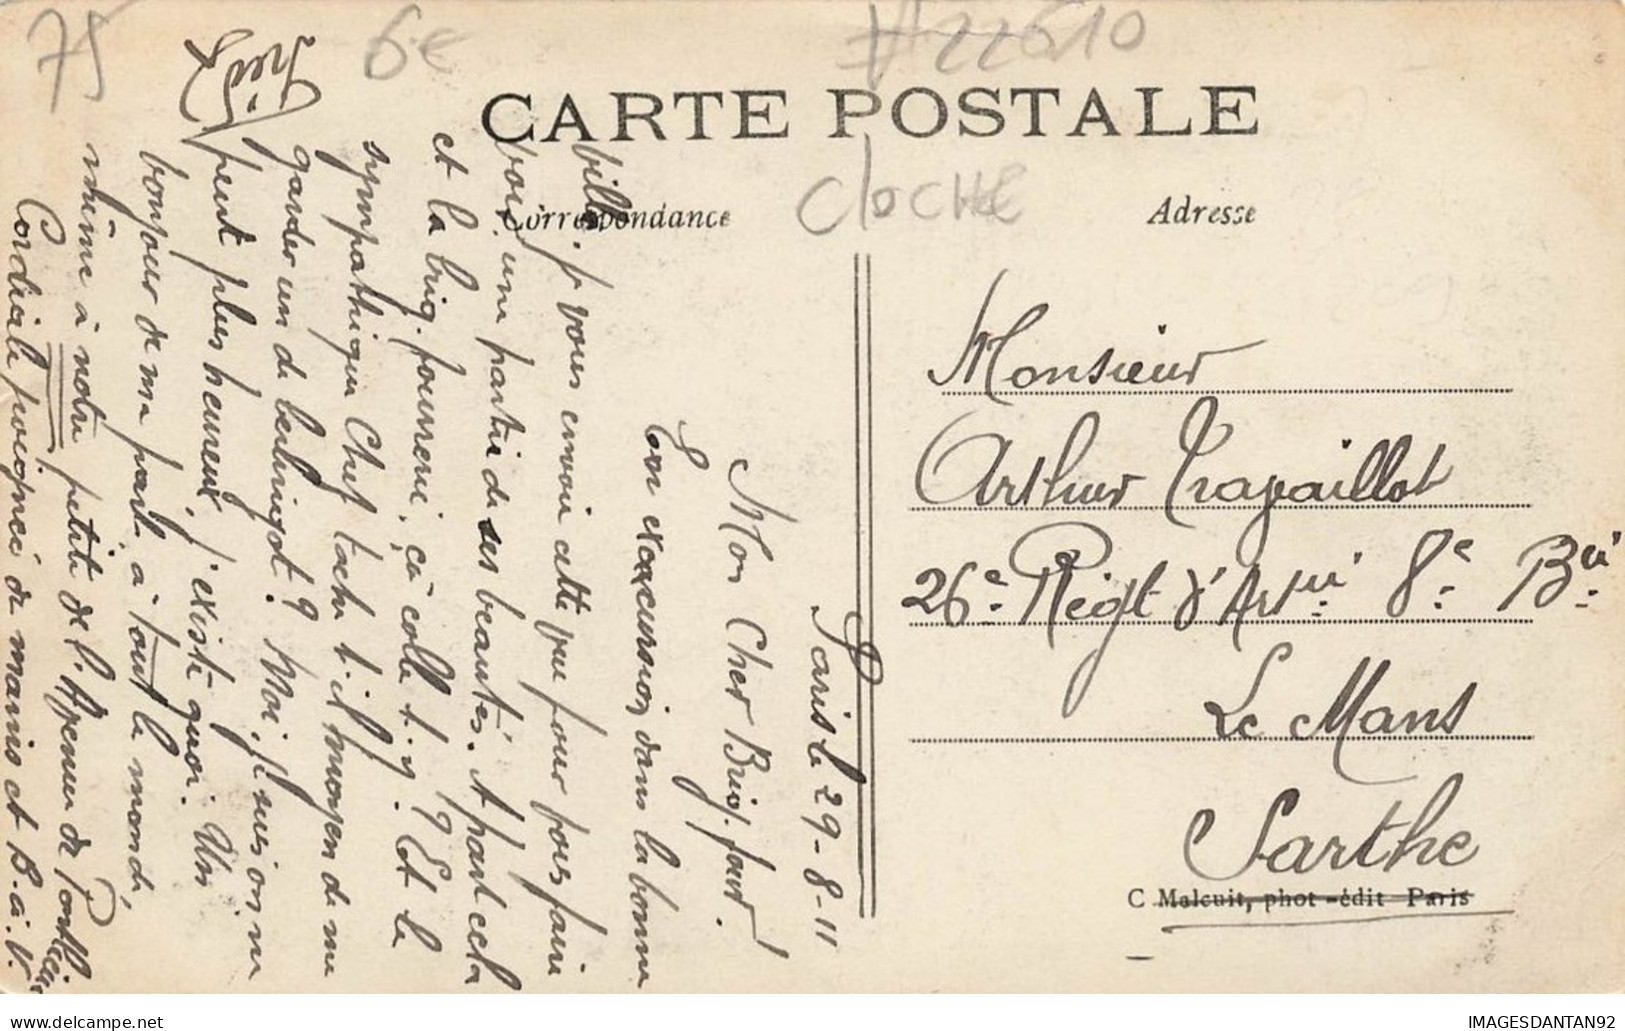 75
6€
22610
CARTE POSTALE
CLOCHE
Correspondance
Adresse
Paris le 29-8-11
Mon Cher Brig. fourr!
En excursion dans la bonne
ville. je vous envoie cette vue pour vous faire
voir une partie de ses beautés. A part cela
et la brig. fourrerie, ça colle t-y? Et le
sympathique Chef tache t-il moyen de me
garder un de berlingot? Moi, je suis on ne
peut plus heureux, j'existe quoi. Un
bonjour de ma part à tout le monde,
même à notre petite de l'Avenue de
Cordiale poignée de mains et B. à V.
Fred
Monsieur
Arthur Trapaillot
26e Régt d'Artrie 8e Bie
Le Mans
Sarthe
C Malcuit, phot-édit Paris
IMAGESDANTAN92